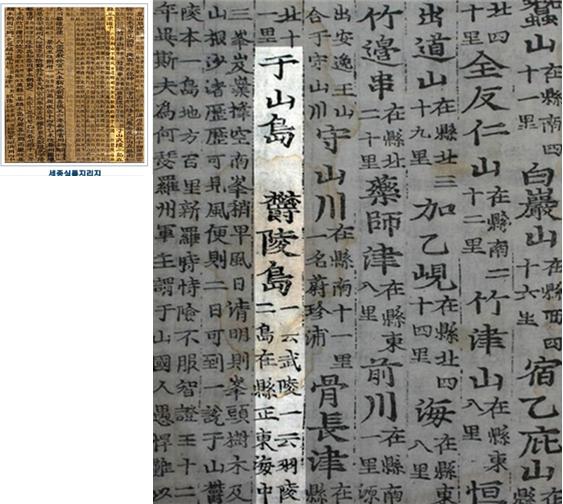 蠶山在縣南四十一里白巖山在縣西四十六里宿乙庇山在縣
十一里全反仁山在縣南二十二里竹津山在縣東八里恒
出道山在縣北三十九里加乙峴在縣北四十四里海在縣東八里
竹邊串在縣北二十里藥師津在縣東八里前川在縣南一里源
出安逸王山合于守山川守山川在縣南十一里一名蔚珍浦骨長津在縣
北十里于山島鬱陵島一云武陵一云羽陵二島在縣正東海中
三峯岌嶪撐空南峯稍卑風日清明則峯頭樹木及
山根沙渚歷歷可見風便則二日可到一說于山鬱
陵本一島地方百里新羅時恃險不服智證王十二
年異斯夫爲何瑟羅州軍主謂于山國人愚悍難以
세종실록지리지